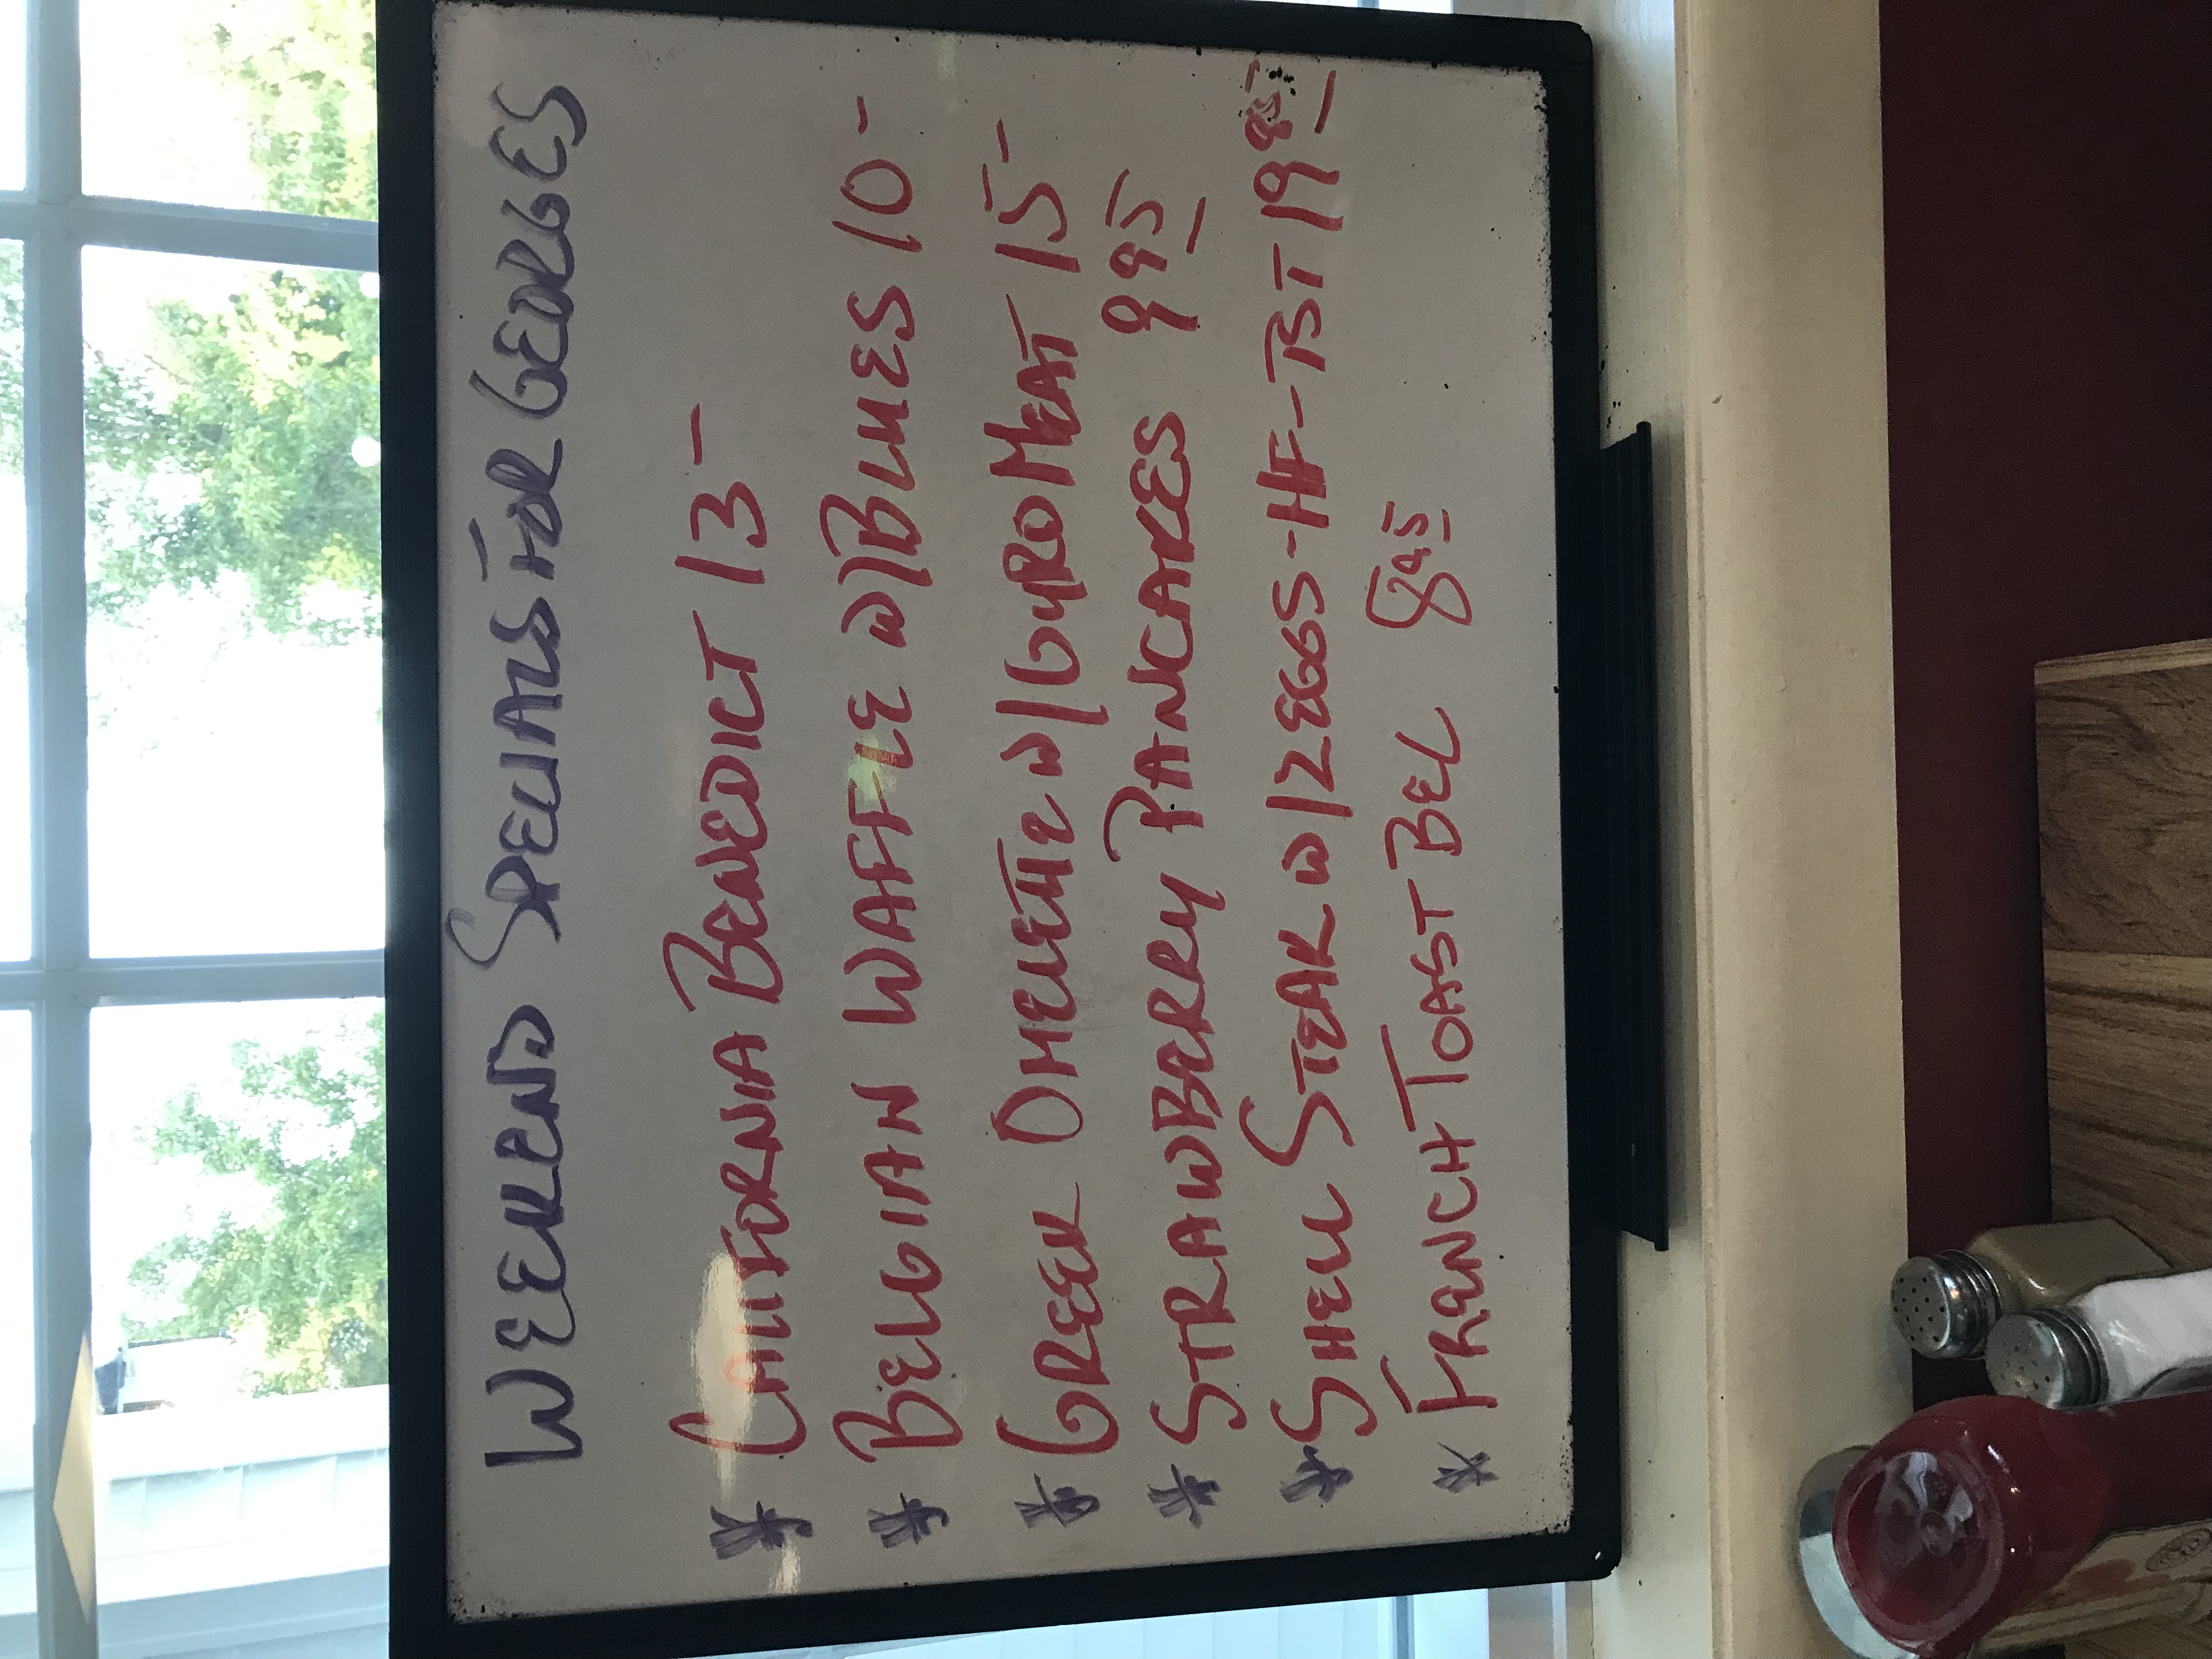 WEEKEND SPECIALS FOR GEORGES
* CALIFORNIA BENEDICT 13-
* BELGIAN WAFFLE W/BLUES 10-
* GREEK OMELETTE W/GYRO MEAT 15-
* STRAWBERRY PANCAKES 9 95
* SHELL STEAK W/2 EGGS-HF-TST 19 95
* FRANCH TOAST BEL 8 95